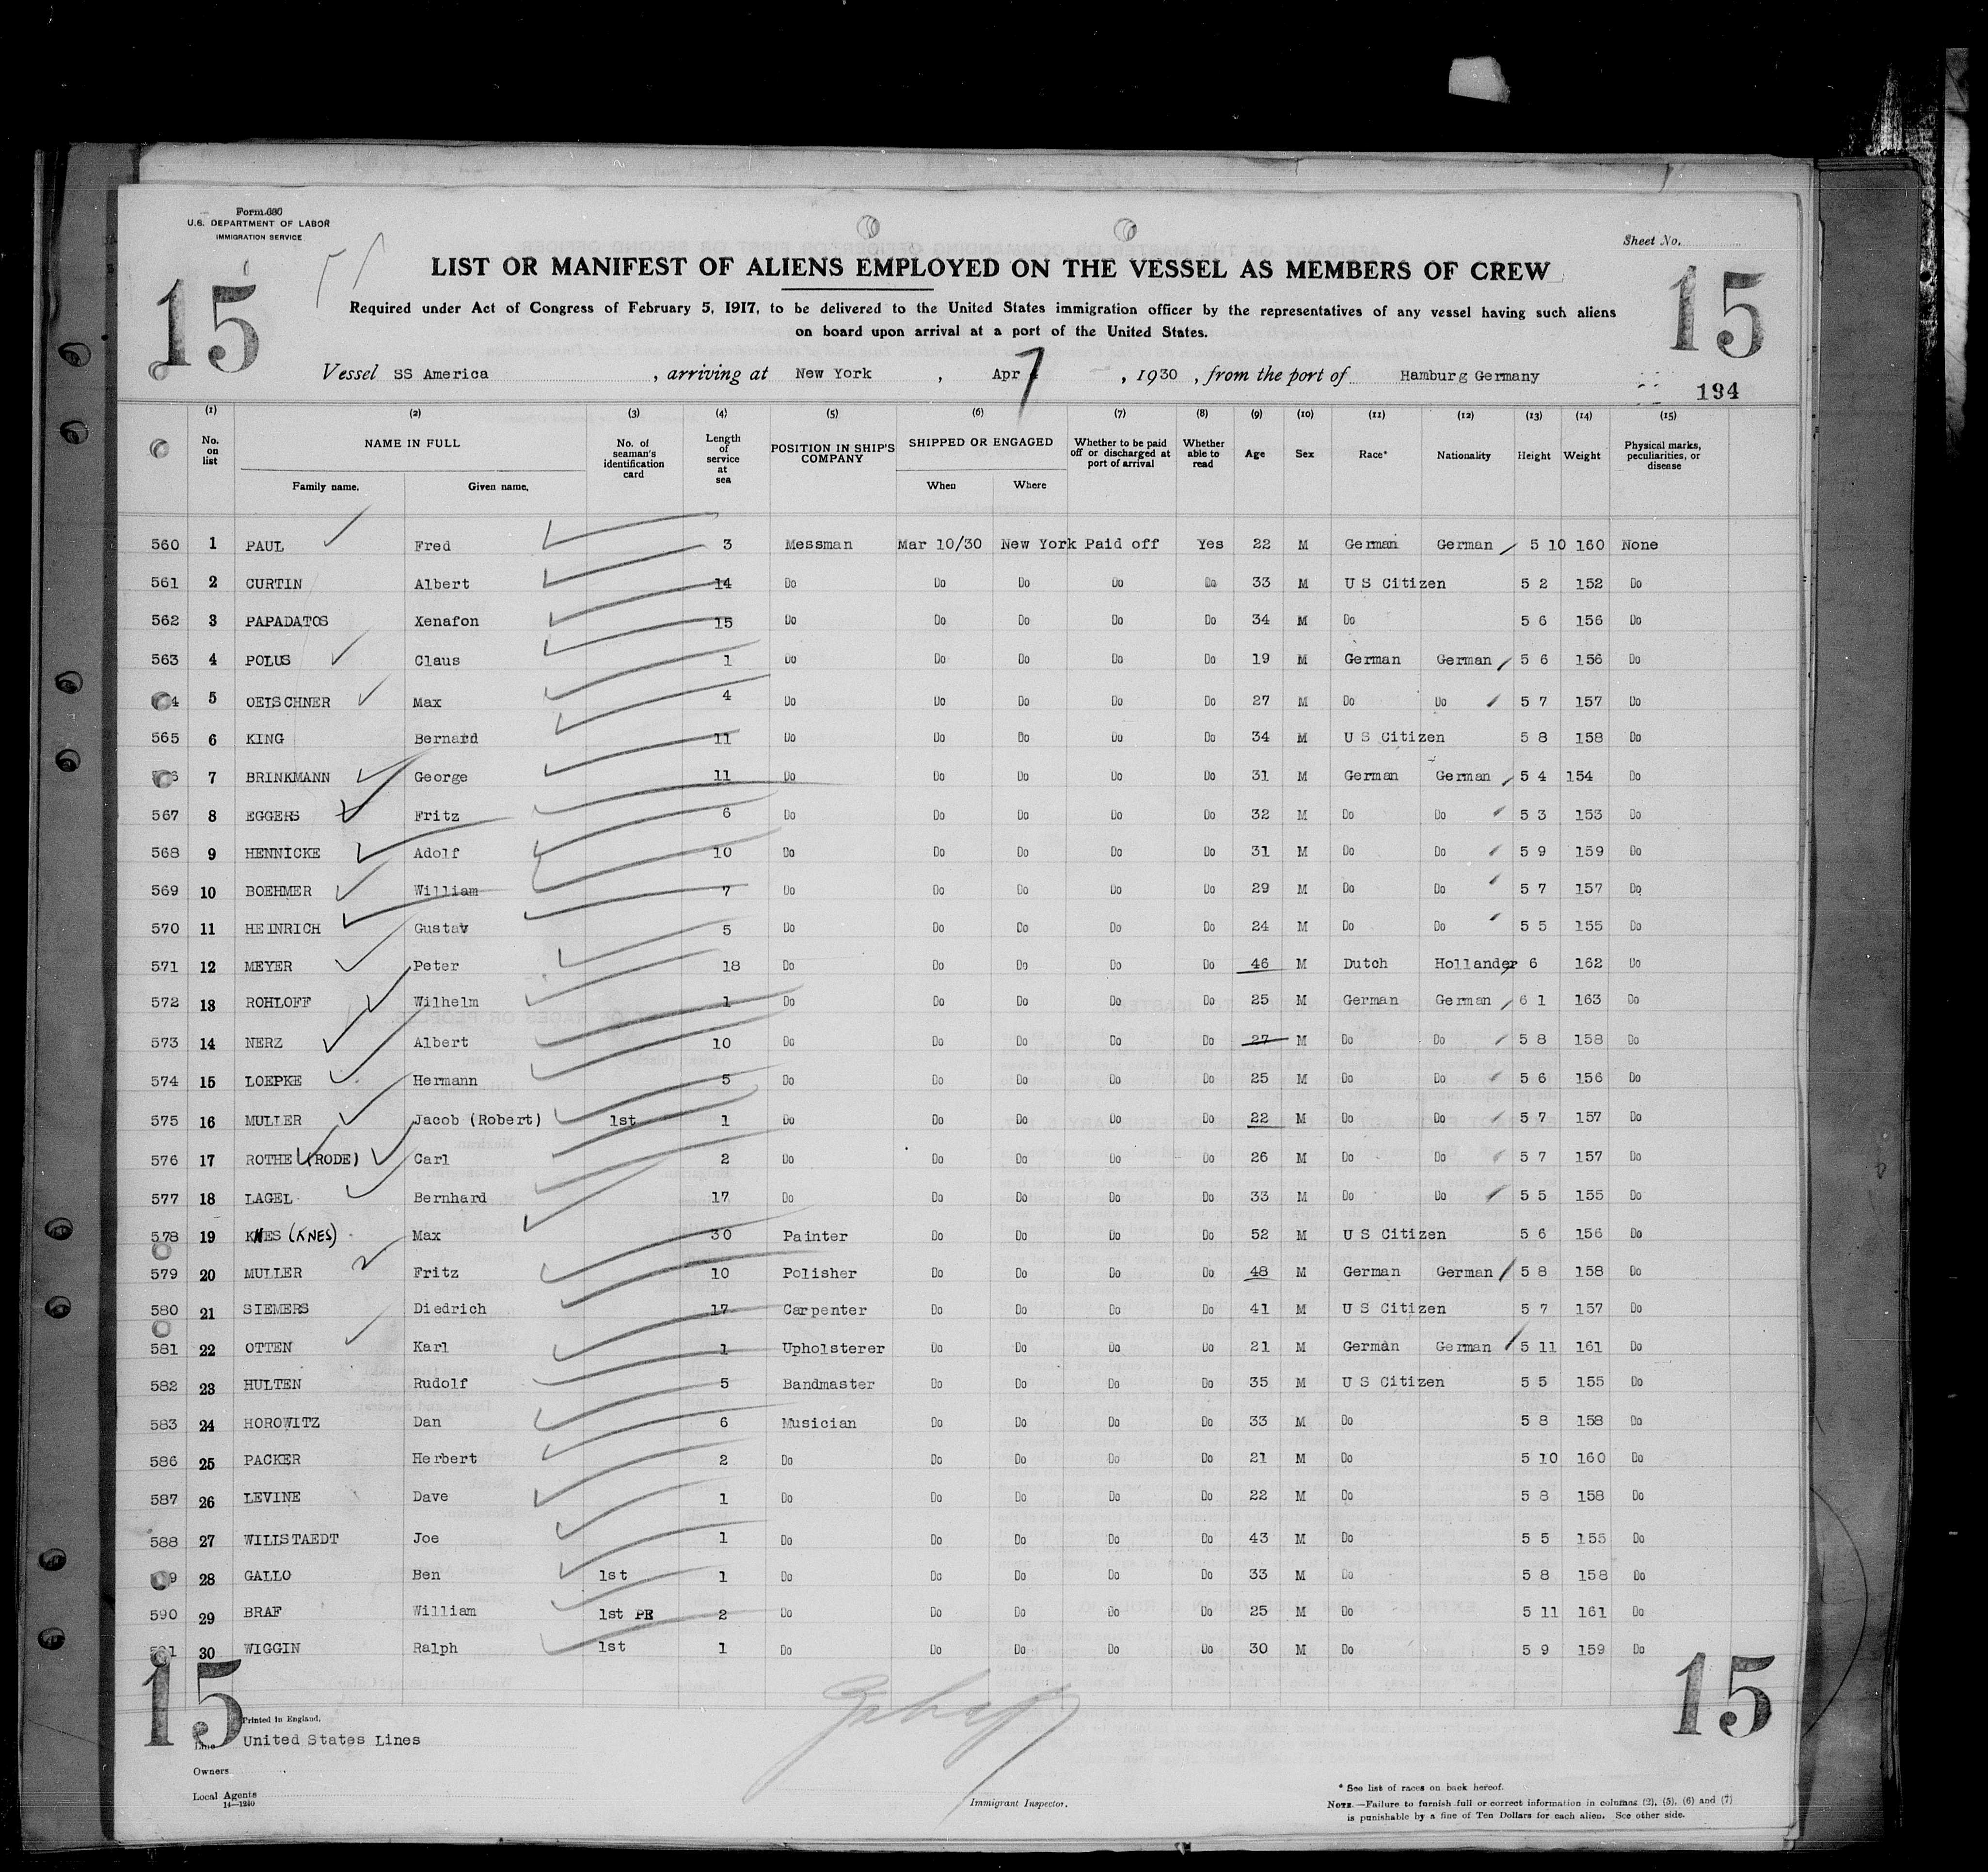 Form 680
U.S. DEPARTMENT OF LABOR
IMMIGRATION SERVICE
Sheet No.
15
15
LIST OR MANIFEST OF ALIENS EMPLOYED ON THE VESSEL AS MEMBERS OF CREW
Required under Act of Congress of February 5, 1917, to be delivered to the United States immigration officer by the representatives of any vessel having such aliens
on board upon arrival at a port of the United States.
Vessel SS America , arriving at New York , Apr 7 , 1930 , from the port of Hamburg Germany
194
(1) (2) (3) (4) (5) (6) (7) (8) (9) (10) (11) (12) (13) (14) (15)
No. on list NAME IN FULL Family name. Given name. No. of seaman's identification card Length of service at sea POSITION IN SHIP'S COMPANY SHIPPED OR ENGAGED When Where Whether to be paid off or discharged at port of arrival Whether able to read Age Sex Race* Nationality Height Weight Physical marks, peculiarities, or disease
560 1 PAUL Fred 3 Messman Mar 10/30 New York Paid off Yes 22 M German German 5 10 160 None
561 2 CURTIN Albert 14 Do Do Do Do Do 33 M U S Citizen 5 2 152 Do
562 3 PAPADATOS Xenafon 15 Do Do Do Do Do 34 M Do 5 6 156 Do
563 4 POLUS Claus 1 Do Do Do Do Do 19 M German German 5 6 156 Do
4 5 OETSCHNER Max 4 Do Do Do Do Do 27 M Do Do 5 7 157 Do
565 6 KING Bernard 11 Do Do Do Do Do 34 M U S Citizen 5 8 158 Do
6 7 BRINKMANN George 11 Do Do Do Do Do 31 M German German 5 4 154 Do
567 8 EGGERS Fritz 6 Do Do Do Do Do 32 M Do Do 5 3 153 Do
568 9 HENNICKE Adolf 10 Do Do Do Do Do 31 M Do Do 5 9 159 Do
569 10 BOEHMER William 7 Do Do Do Do Do 29 M Do Do 5 7 157 Do
570 11 HEINRICH Gustav 5 Do Do Do Do Do 24 M Do Do 5 5 155 Do
571 12 MEYER Peter 18 Do Do Do Do Do 46 M Dutch Hollander 6 162 Do
572 13 ROHLOFF Wilhelm 1 Do Do Do Do Do 25 M German German 6 1 163 Do
573 14 NERZ Albert 10 Do Do Do Do Do 27 M Do Do 5 8 158 Do
574 15 LOEPKE Hermann 5 Do Do Do Do Do 25 M Do Do 5 6 156 Do
575 16 MULLER Jacob (Robert) 1st 1 Do Do Do Do Do 22 M Do Do 5 7 157 Do
576 17 ROTHE (RODE) Carl 2 Do Do Do Do Do 26 M Do Do 5 7 157 Do
577 18 LAGEL Bernhard 17 Do Do Do Do Do 33 M Do Do 5 5 155 Do
578 19 KNES (KNES) Max 30 Painter Do Do Do Do 52 M U S Citizen 5 6 156 Do
579 20 MULLER Fritz 10 Polisher Do Do Do Do 48 M German German 5 8 158 Do
580 21 SIEMERS Diedrich 17 Carpenter Do Do Do Do 41 M U S Citizen 5 7 157 Do
581 22 OTTEN Karl 1 Upholsterer Do Do Do Do 21 M German German 5 11 161 Do
582 23 HULTEN Rudolf 5 Bandmaster Do Do Do Do 35 M U S Citizen 5 5 155 Do
583 24 HOROWITZ Dan 6 Musician Do Do Do Do 33 M Do 5 8 158 Do
586 25 PACKER Herbert 2 Do Do Do Do Do 21 M Do 5 10 160 Do
587 26 LEVINE Dave 1 Do Do Do Do Do 22 M Do 5 8 158 Do
588 27 WILLSTAEDT Joe 1 Do Do Do Do Do 43 M Do 5 5 155 Do
9 28 GALLO Ben 1st 1 Do Do Do Do Do 33 M Do 5 8 158 Do
590 29 BRAF William 1st PE 2 Do Do Do Do Do 25 M Do 5 11 161 Do
591 30 WIGGIN Ralph 1st 1 Do Do Do Do Do 30 M Do 5 9 159 Do
15
15
Printed in England.
Line United States Lines
Owners
Local Agents
14—1240
Immigrant Inspector.
* See list of races on back hereof.
NOTE.—Failure to furnish full or correct information in columns (2), (5), (6) and (7)
is punishable by a fine of Ten Dollars for each alien. See other side.